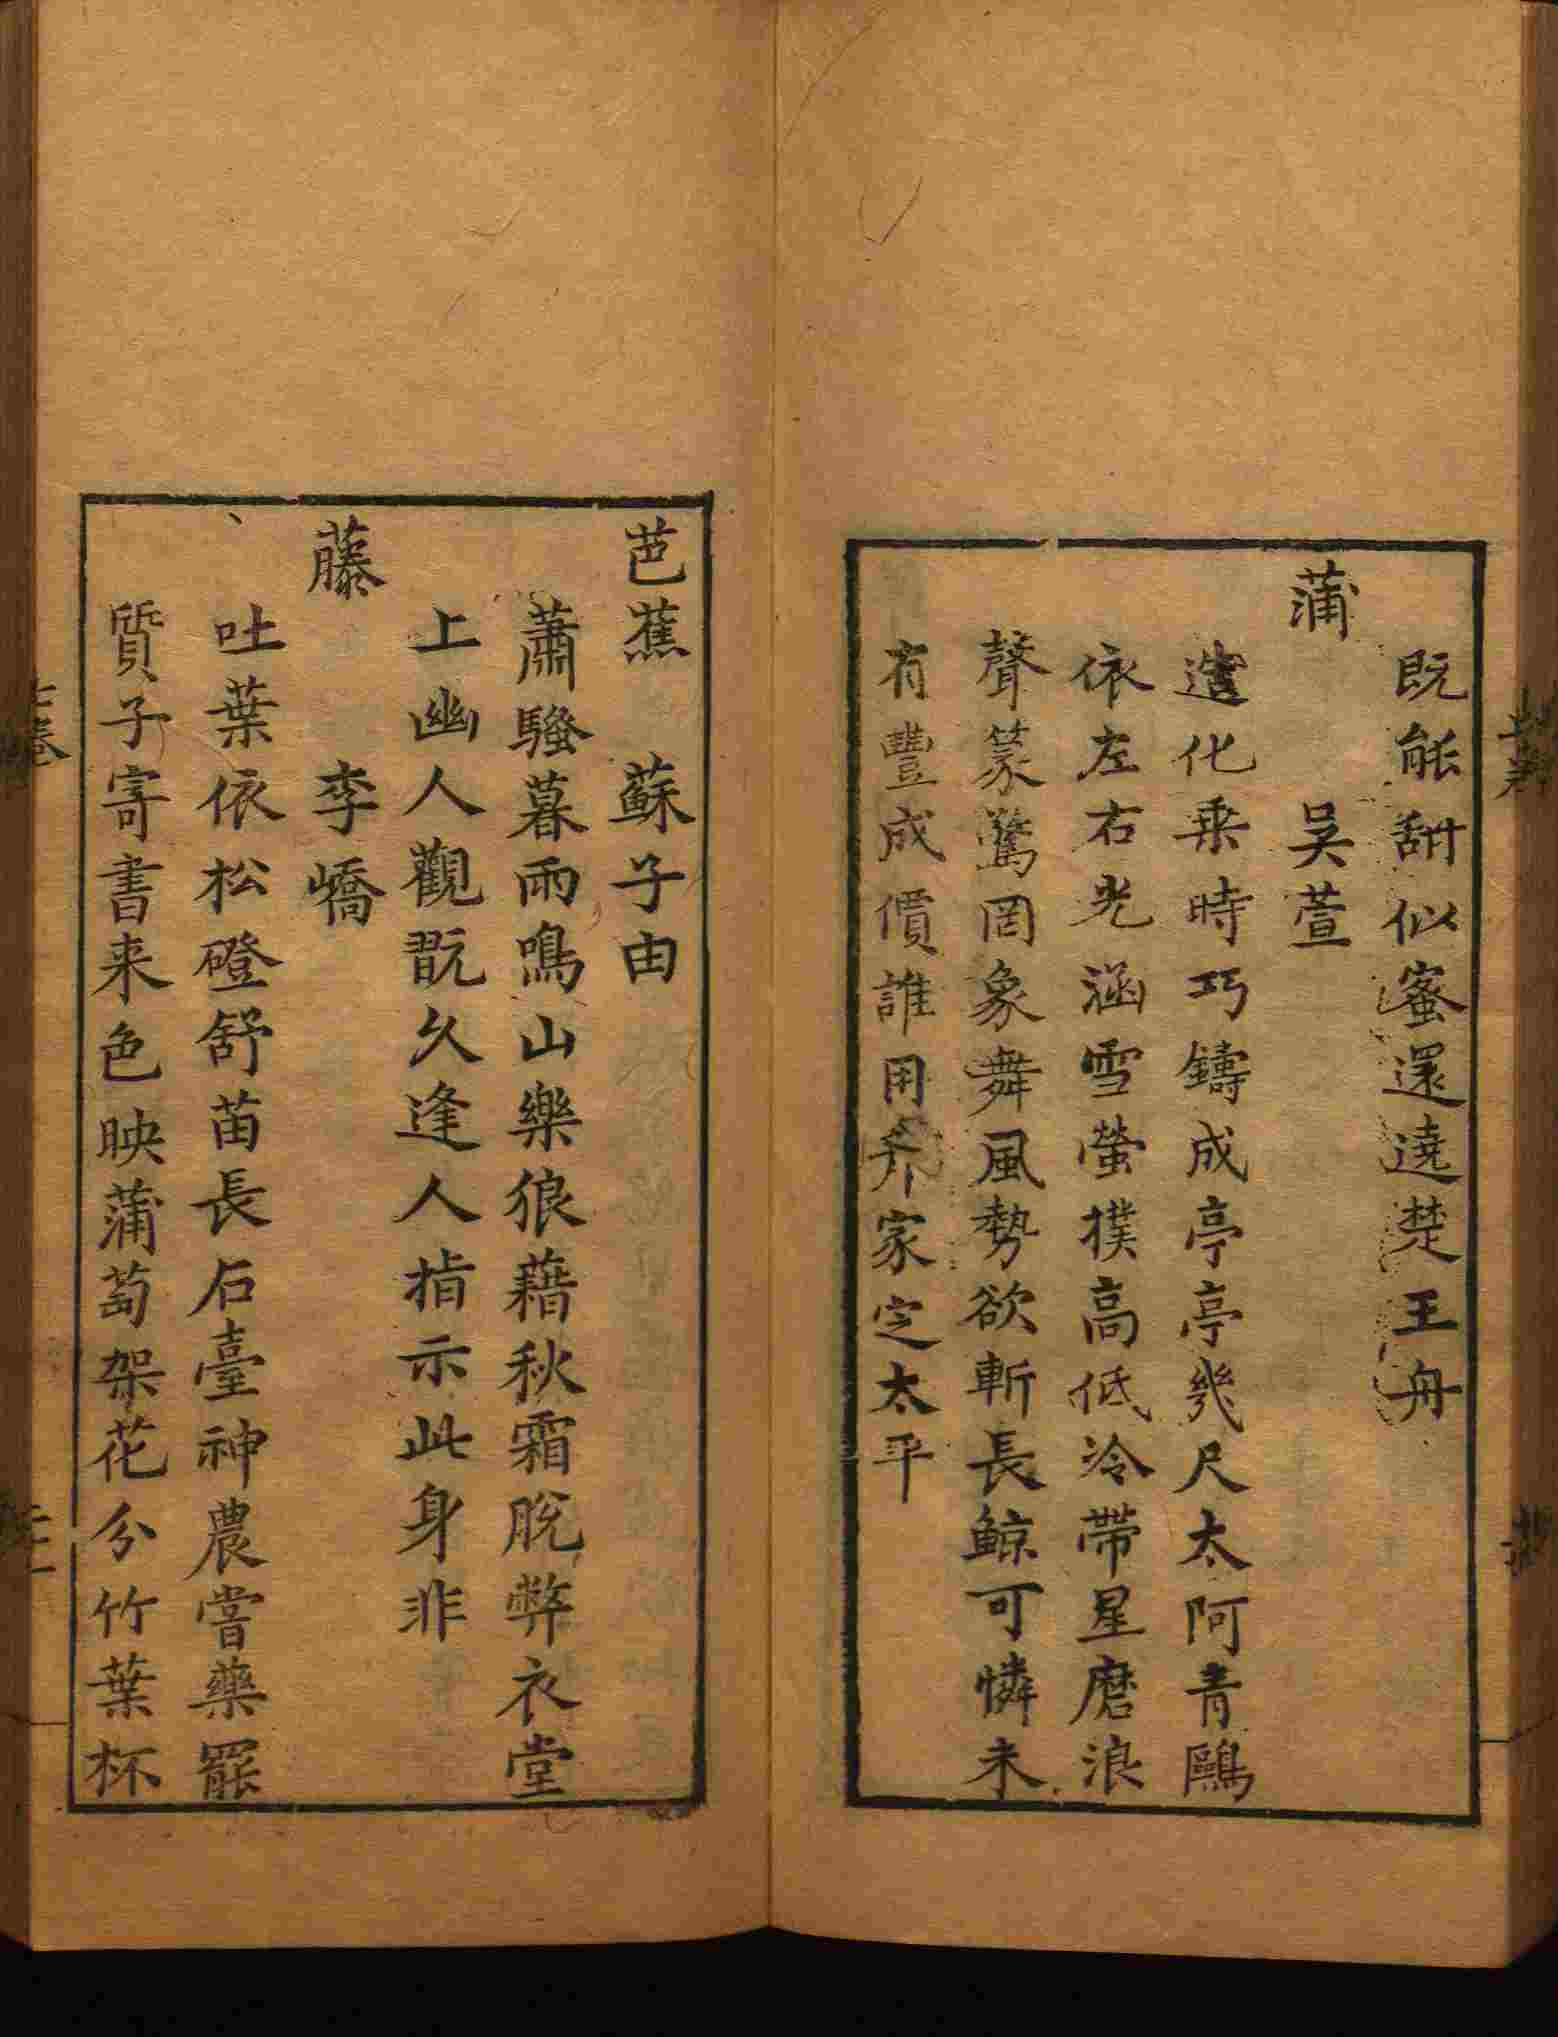 既能甜似蜜還遶楚王舟
蒲　吳萱
造化乗時巧鑄成亭亭幾尺太阿青鷗
依左右光涵雪螢撲高低冷帶星磨浪
聲篆驚罔象舞風勢欲斬長鯨可憐未
有豐成價誰用齐家定太平
芭蕉　蘇子由
蕭騷暮雨鳴山樂狼藉秋霜脫弊衣堂
上幽人觀既久逢人指示此身非
藤　李嶠
吐葉依松磴舒苗長石臺神農嘗藥罷
質子寄書来色映蒲萄架花分竹葉杯